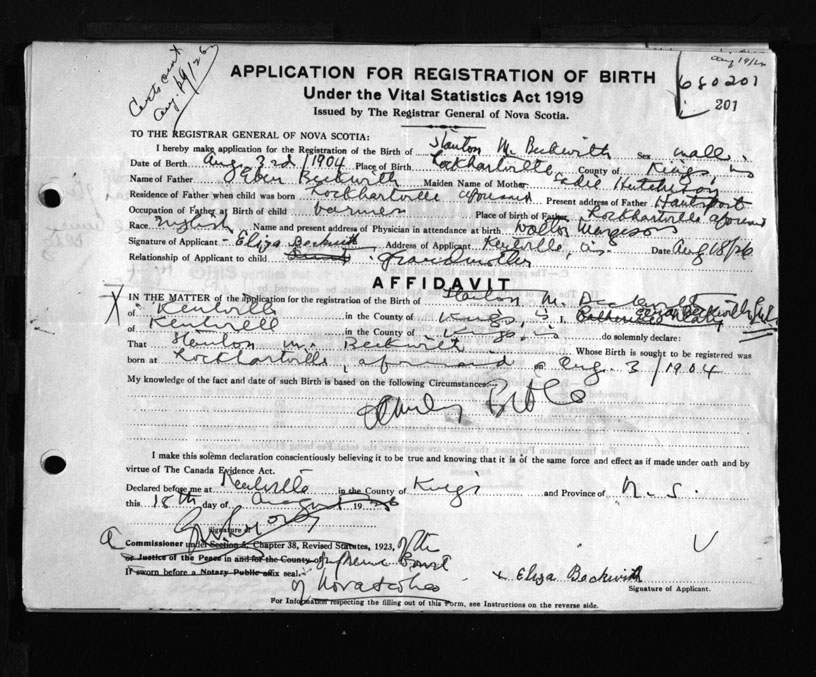 Aug 19/26
Certs sent
Aug 19/26
680201
201
APPLICATION FOR REGISTRATION OF BIRTH
Under the Vital Statistics Act 1919
Issued by The Registrar General of Nova Scotia.
TO THE REGISTRAR GENERAL OF NOVA SCOTIA:
I hereby make application for the Registration of the Birth of Stanton M. Beckwith Sex male.
Date of Birth Aug 3rd/1904 Place of Birth Lockhartville County of Kings, ns
Name of Father Eben Beckwith Maiden Name of Mother Sadie Hutchison
Residence of Father when child was born Lockhartville aforesaid Present address of Father Hantsport
Occupation of Father at Birth of child Farmer Place of birth of Father Lockhartville aforesaid
Race English Name and present address of Physician in attendance at birth Walton
Signature of Applicant - Eliza Beckwith Address of Applicant Kentville, ns. Date Aug 18/26
Relationship of Applicant to child grandmother
AFFIDAVIT
IN THE MATTER of the application for the registration of the Birth of Stanton M. Beckwith
of Kentville in the County of Kings, ns I, Eliza Beckwith
of Kentville in the County of Kings, ns do solemnly declare:
That Stanton M. Beckwith Whose Birth is sought to be registered was
born at Lockhartville, aforesaid on Aug. 3/1904
My knowledge of the fact and date of such Birth is based on the following Circumstances:
Family Bible
I make this solemn declaration conscientiously believing it to be true and knowing that it is of the same force and effect as if made under oath and by
virtue of The Canada Evidence Act.
Declared before me at Kentville in the County of Kings and Province of N. S.
this 18th day of August 1926
Signature of
a Commissioner under Section 6, Chapter 38, Revised Statutes, 1923, of the
or Justice of the Peace in and for the County of Supreme Court
If sworn before a Notary Public affix seal.
of Nova Scotia
x Eliza Beckwith
Signature of Applicant.
For Information respecting the filling out of this Form, see Instructions on the reverse side.